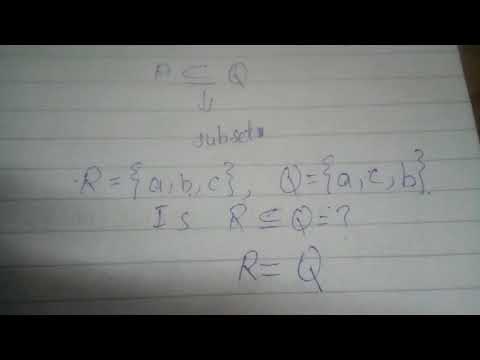 A ⊆ Q
↓
subset
R = {a, b, c}, Q = {a, c, b}
Is R ⊆ Q = ?
R = Q